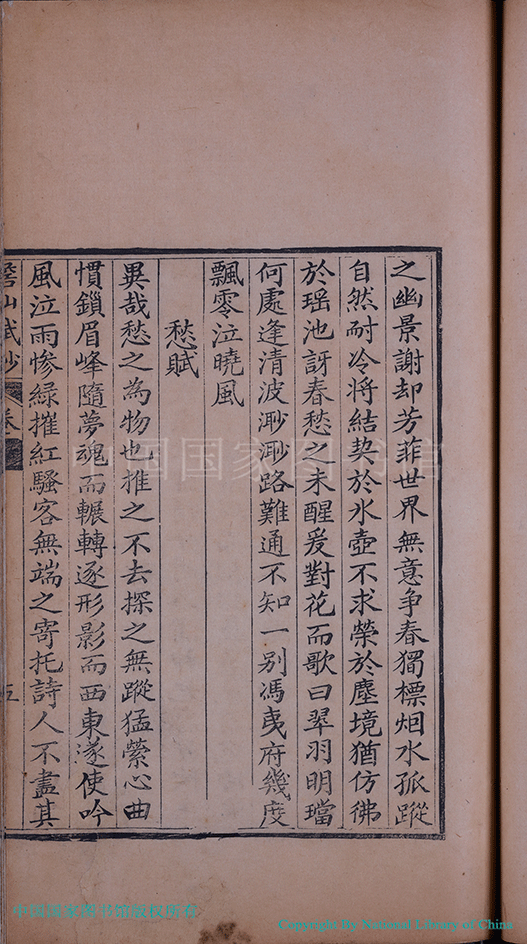 之幽景謝却芳菲世界無意争春獨標烟水孤蹤
自然耐冷将結契於氷壺不求榮於塵境猶仿彿
於瑶池訝春愁之未醒爰對花而歌曰翠羽明璫
何處逢清波渺渺路難通不知一别馮夷府幾度
飄零泣曉風
愁賦
異哉愁之為物也推之不去探之無蹤猛縈心曲
慣鎖眉峰隨夢魂而輾轉逐形影而西東遂使吟
風泣雨惨緑摧紅騷客無端之寄托詩人不盡其
山賦鈔
卷
五
中国国家图书馆
中国国家图书馆版权所有
Copyright By National Library of China